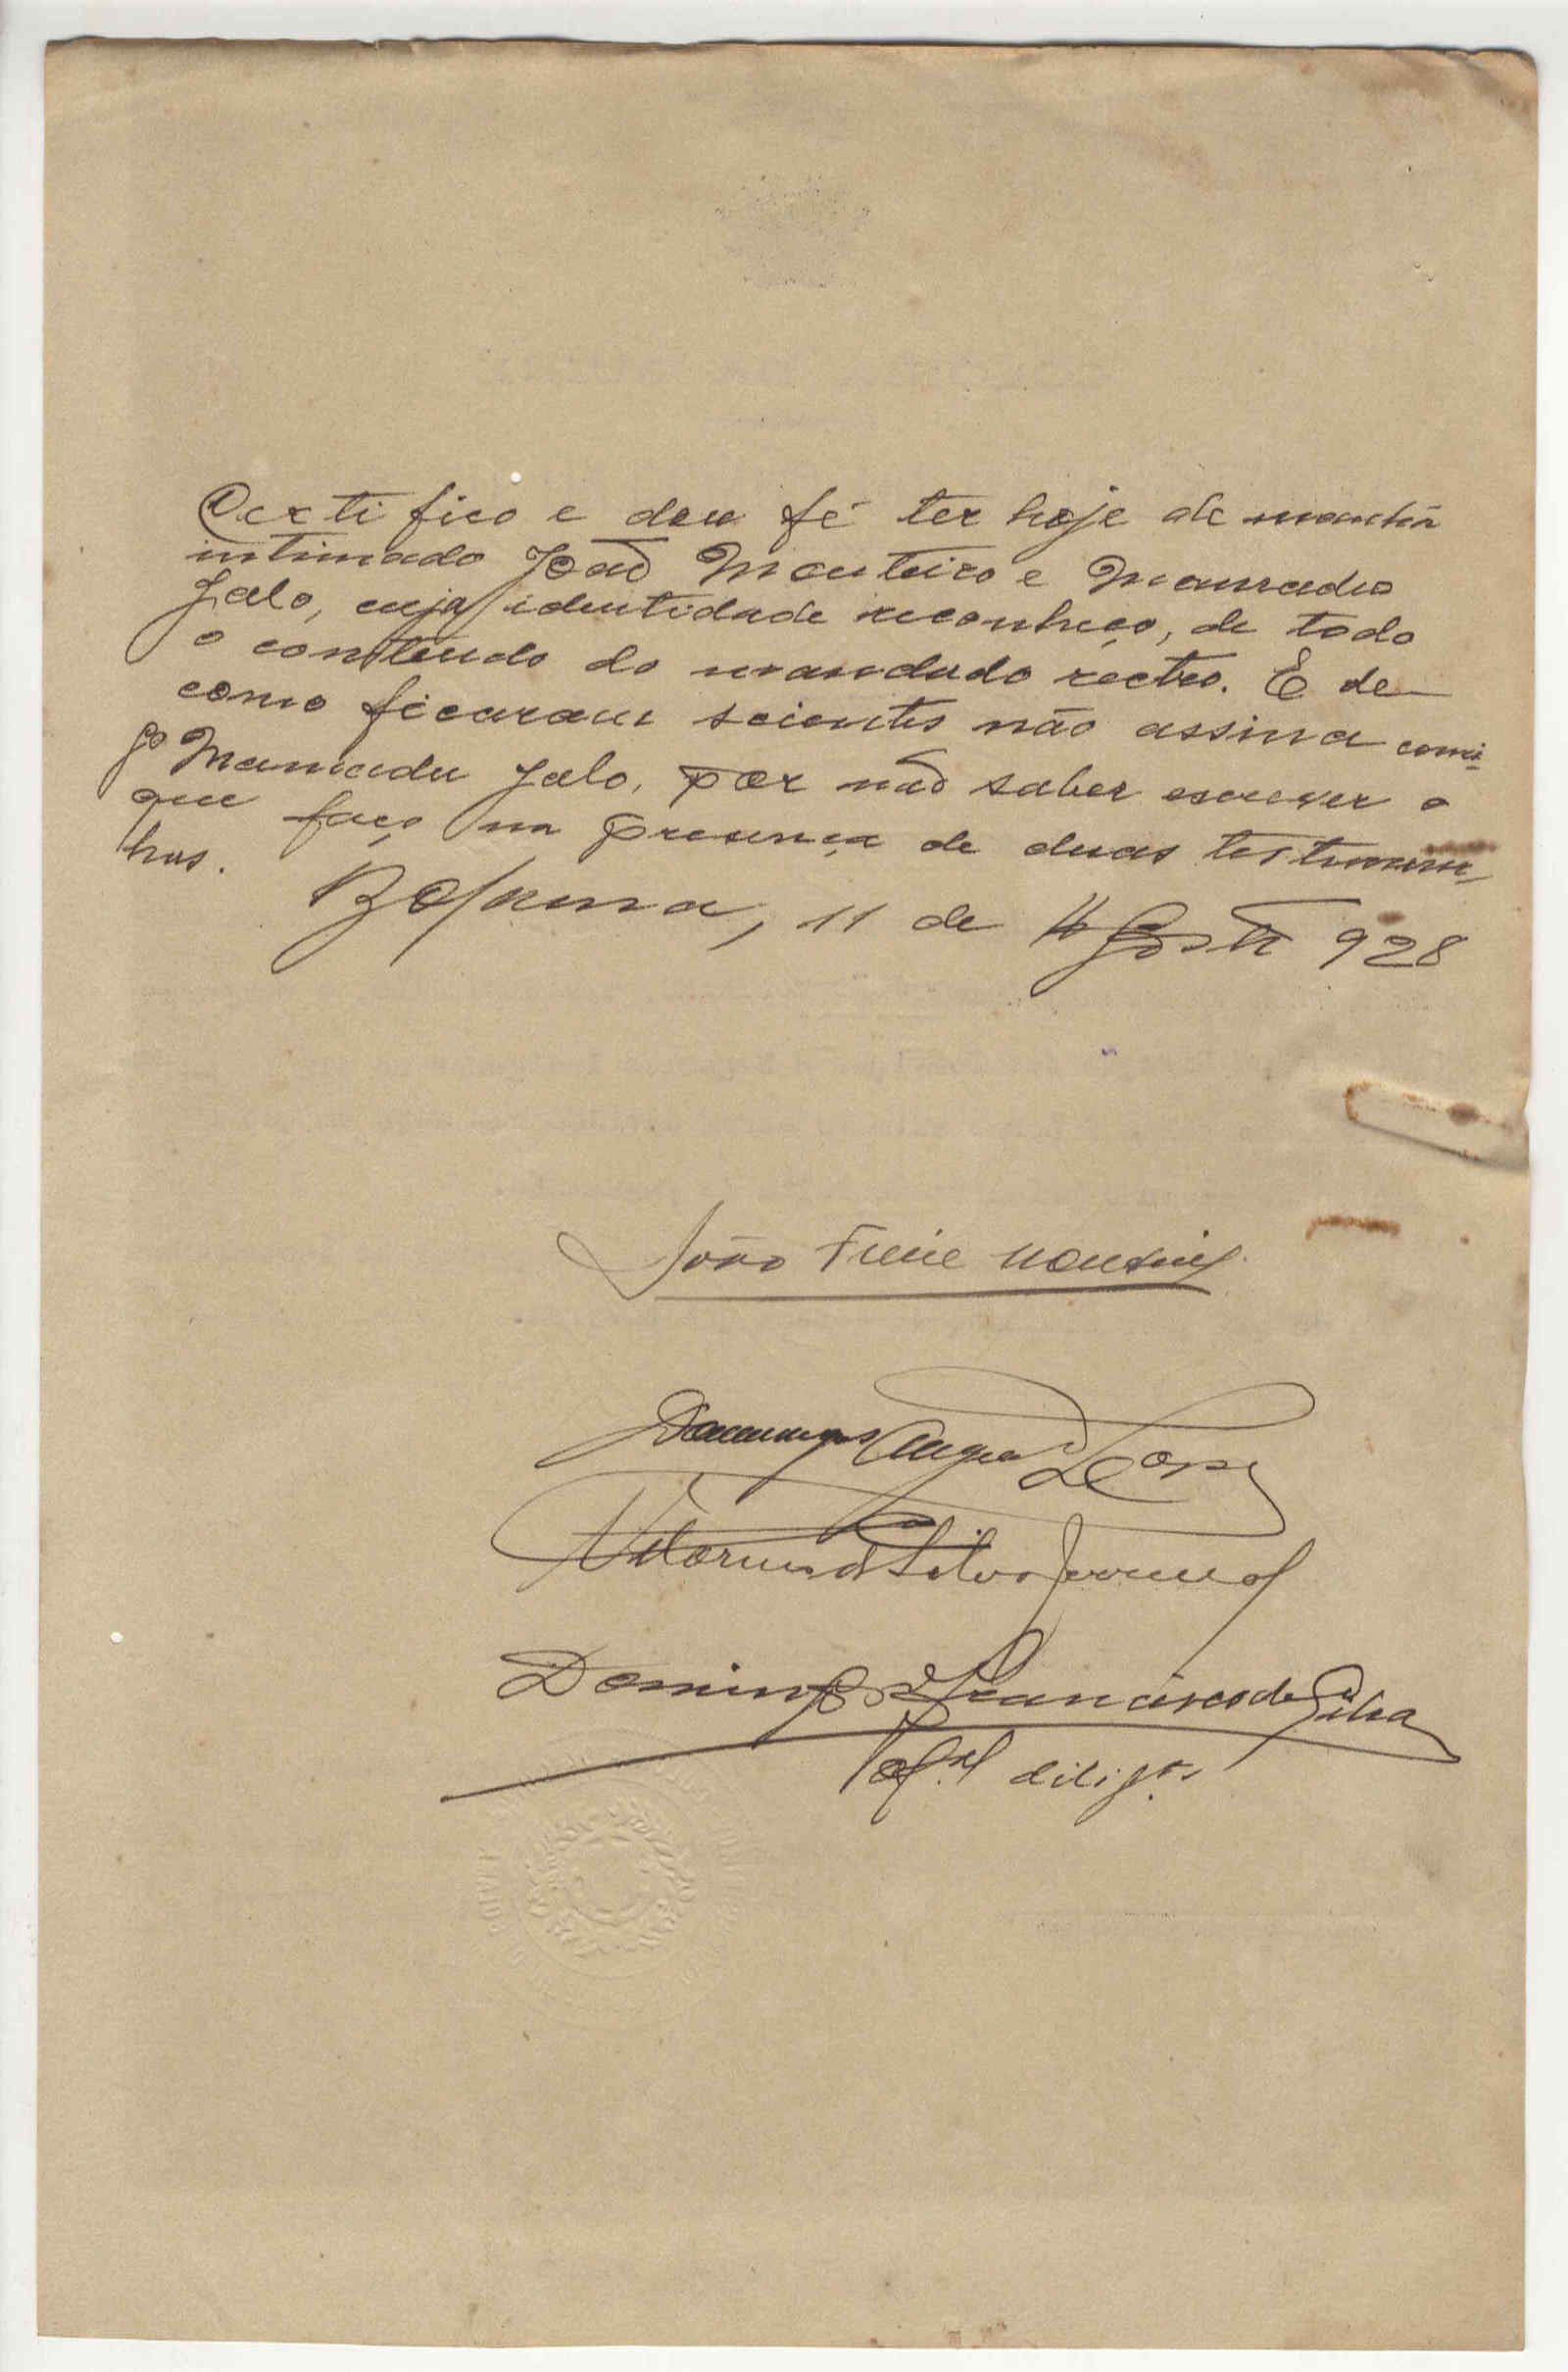 Certifico e dou fé ter hoje de manhã
intimado João Monteiro e Mamadu
Jalo, cuja identidade reconheço, de todo
o contendo do mandado rectro. E de
como ficaram scientes não assina comi-
go Mamadu Jalo, por não saber escrever o
que faço na presença de duas testemu-
has.
Bolama, 11 de Agosto 928
João Freire Monteiro
Domingos Lopes
Vitorino da Silva
Domingos Francisco da Silva
Of.al dilig.as